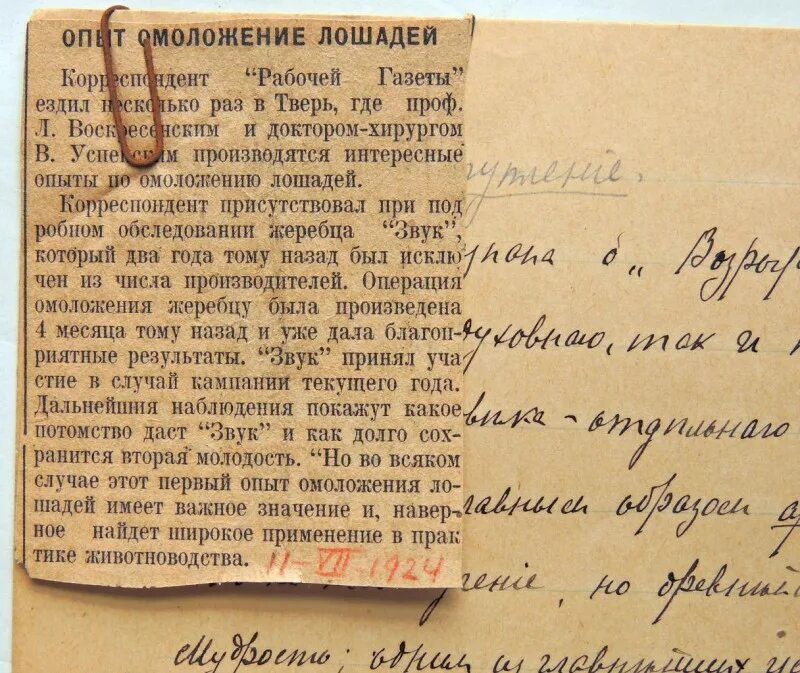 ОПЫТ ОМОЛОЖЕНИЕ ЛОШАДЕЙ
Корреспондент "Рабочей Газеты"
ездил несколько раз в Тверь, где проф.
Л. Воскресенским и доктором-хирургом
В. Успенским производятся интересные
опыты по омоложению лошадей.
Корреспондент присутствовал при под
робном обследовании жеребца "Звук",
который два года тому назад был исклю
чен из числа производителей. Операция
омоложения жеребцу была произведена
4 месяца тому назад и уже дала благоп-
риятные результаты. "Звук" принял уча
стие в случай кампании текущего года.
Дальнейшия наблюдения покажут какое
потомство даст "Звук" и как долго сох-
ранится вторая молодость. "Но во всяком
случае этот первый опыт омоложения ло-
шадей имеет важное значение и, навер-
ное найдет широкое применение в прак
тике животноводства.
11-VII-1924
упленіе.
б „ Возры
уховнаго, так и
вика - отдѣльнаго
лавным образом
еніе, но древній
Мудрость; одним из главнѣйших